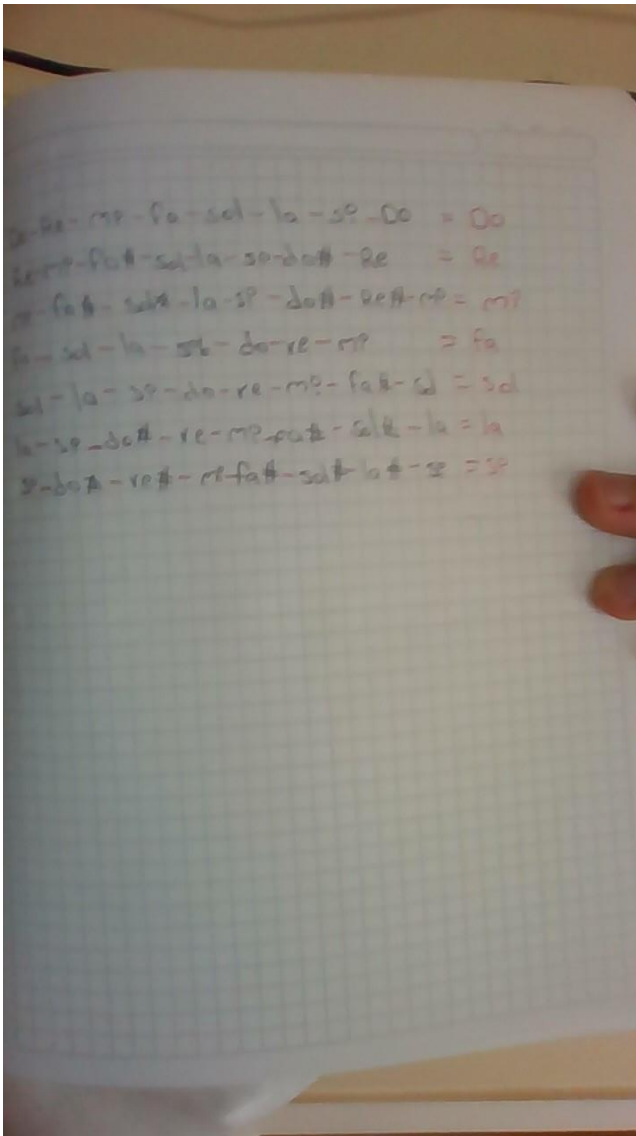 Do-Re-mi-fa-sol-la-si-Do = Do
Re-mi-fa#-sol-la-si-do#-Re = Re
mi-fa#-sol#-la-si-do#-Re#-mi = mi
fa-sol-la-sib-do-re-mi = fa
sol-la-si-do-re-mi-fa#-sol = sol
la-si-do#-re-mi-fa#-sol#-la = la
si-do#-re#-mi-fa#-sol#-la#-si = si